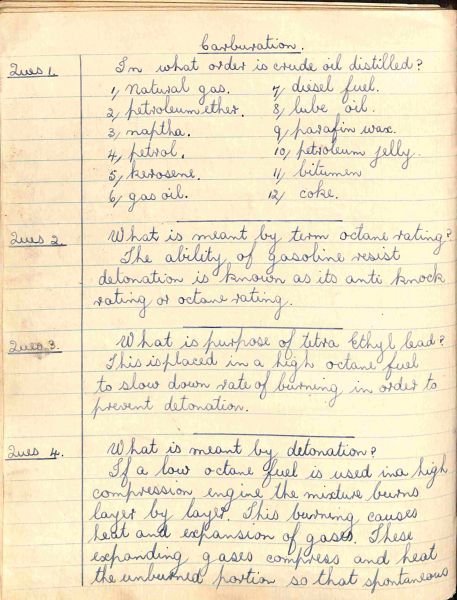 Carburation.
Ques 1. In what order is crude oil distilled?
1, Natural gas. 7, diesel fuel.
2, petroleum ether. 8, lube oil.
3, naptha. 9, parafin wax.
4, petrol. 10, petroleum jelly.
5, kerosene. 11, bitumen
6, gas oil. 12, coke.
Ques 2. What is meant by term octane rating?
The ability of gasoline resist
detonation is known as its anti knock
rating or octane rating.
Ques 3. What is purpose of tetra Ethyl lead?
This is placed in a high octane fuel
to slow down rate of burning in order to
prevent detonation.
Ques 4. What is meant by detonation?
If a low octane fuel is used in a high
compression engine the mixture burns
layer by layer. This burning causes
heat and expansion of gases. These
expanding gases compress and heat
the unburned portion so that spontaneous